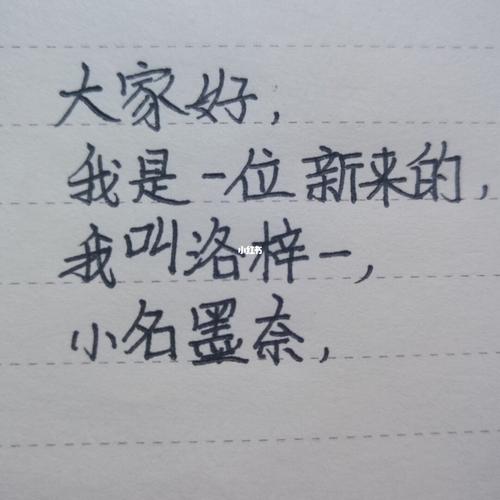 大家好,
我是一位新来的,
我叫洛梓一,
小红书
小名墨奈,